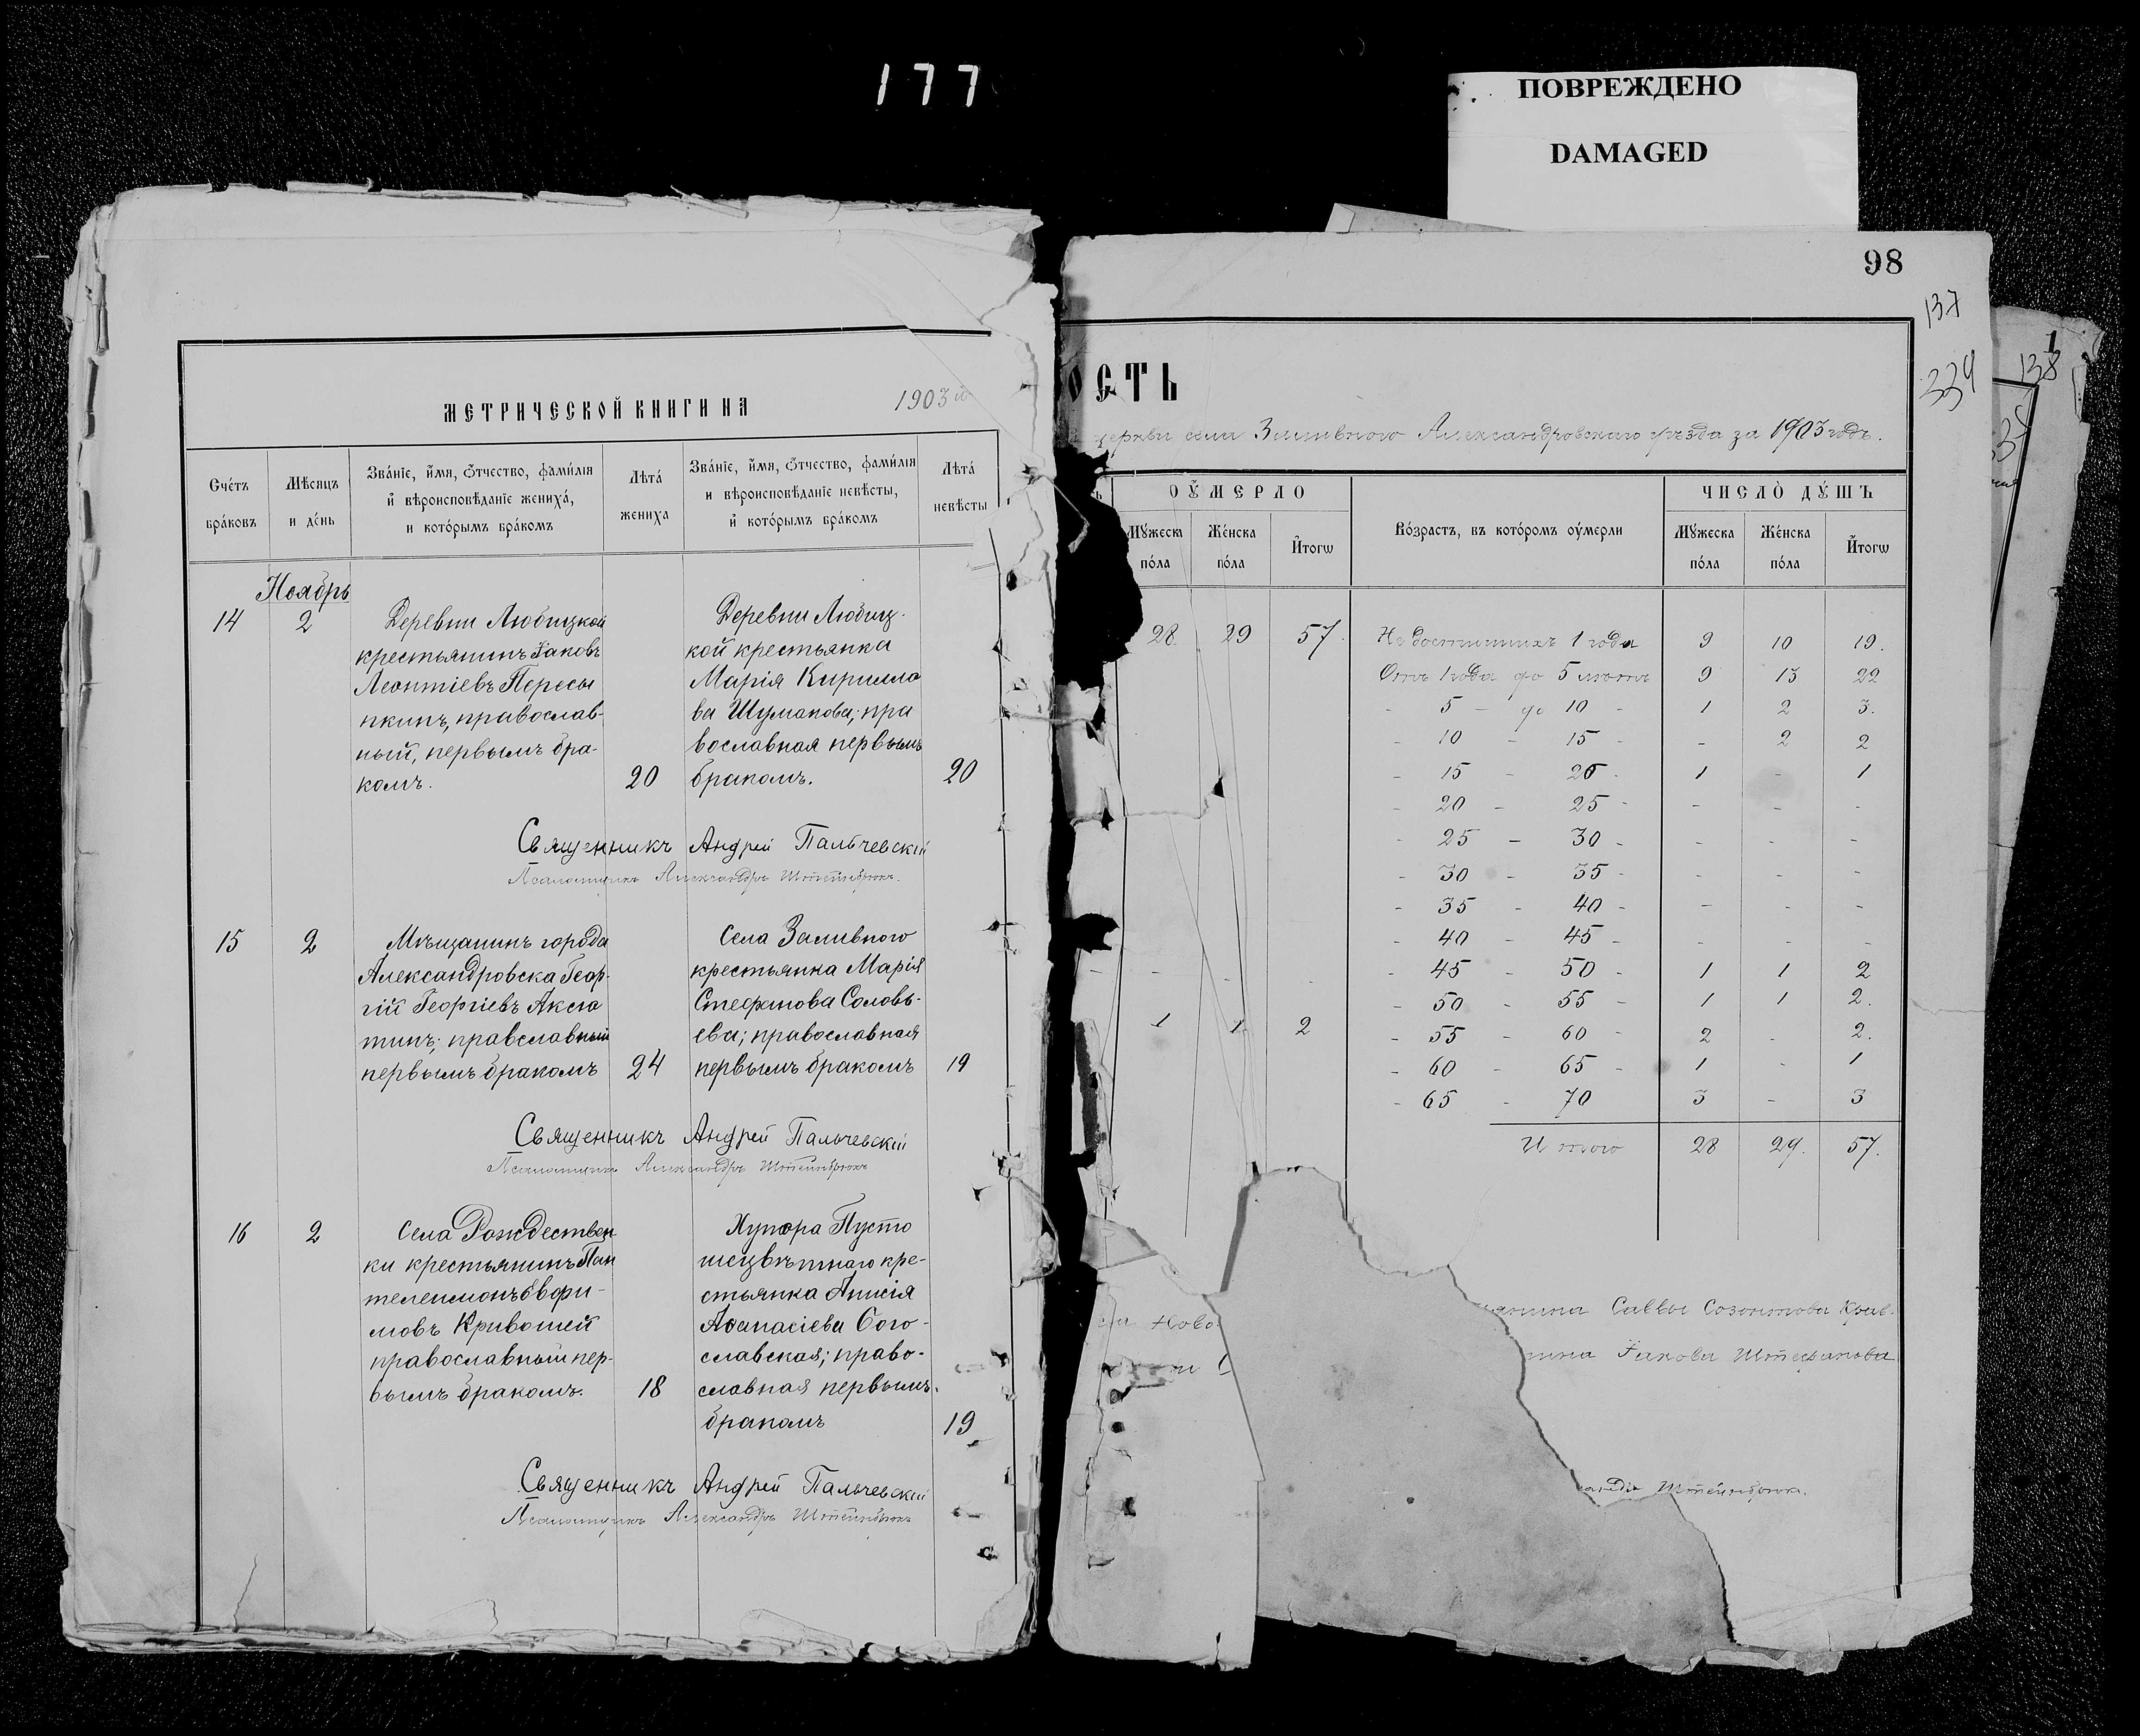 177
ПОВРЕЖДЕНО
DAMAGED
МЕТРИЧЕСКОЙ КНИГИ НА 1903й
Счéтъ брáковъ
Мѣсяцъ и дéнь
Звáнїе, и҆́мя, ѻ҆́тчество, фамѝлїя и҆ вѣроисповѣ́данїе женихá, и котóрымъ брáкомъ
Лѣтá жениха
Звáнїе, и҆́мя, ѻ҆́тчество, фамѝлїя и вѣроисповѣ́данїе невѣ́сты, и҆ котóрымъ брáкомъ
Лѣтá невѣ́сты
Ноябрь
14
2
Деревни Любицкой
крестьянинъ Іаковъ
Леонтіевъ Пересы
пкинъ, православ-
ный, первымъ бра-
комъ.
20
Деревни Любиц-
кой крестьянка
Марія Кирилло
ва Шумакова; пра
вославная первымъ
бракомъ.
20
Священникъ Андрей Пальчевскій
Псаломщикъ Александръ Штейнбрюкъ.
15
2
Мѣщанинъ города
Александровска Геор-
гій Георгіевъ Аксю
тинъ; правславный
первымъ бракомъ
24
Села Заливного
крестьянка Марія
Стефанова Соловь-
ева; православная
первымъ бракомъ
19
Священникъ Андрей Пальчевскій
Псаломщикъ Александръ Штейнбрюкъ
16
2
Села Рождествен
ки крестьянинъ Пан
телеимонъ Евфи-
мовъ Кривошей
православный пер-
вымъ бракомъ.
18
Хутора Пусто
шецвѣтнаго кре-
стьянка Анисія
Аѳанасіева Бого-
славская; право-
славная первымъ
бракомъ
19
Священникъ Андрей Пальчевскій
Псаломщикъ Александръ Штейнбрюкъ
98
137
334
138
ОСТЬ
церкви села Заливного Александровскаго уѣзда за 1903 годъ.
ОУ҆МЕРЛО
Мꙋ́жеска пóла
Жéнска пóла
И҆тогѡ
Вóзрастъ, въ котóромъ оу҆мерли
ЧИСЛО ДꙊ́ШЪ
Мꙋ́жеска пóла
Жéнска пóла
И҆тогѡ
28 29 57. Не достигшихъ 1 года 9 10 19.
Отъ 1 года до 5 лѣтъ 9 13 22
- 5 - до 10 - 1 2 3.
- 10 - 15 - - 2 2
- 15 - 20 - 1 - 1
- 20 - 25 - - - -
- 25 - 30 - - - -
- 30 - 35 - - - -
- 35 - 40 - - - -
- 40 - 45 - - - -
- - - - 45 - 50 - 1 1 2
- 50 - 55 - 1 1 2.
1 1 2 - 55 - 60 - 2 - 2.
- 60 - 65 - 1 - 1
- 65 - 70 3 - 3
Итого 28 29. 57.
Саввы Созонтова Крав-
Ново
Іакова Штефанова
Штейнбрюкъ.